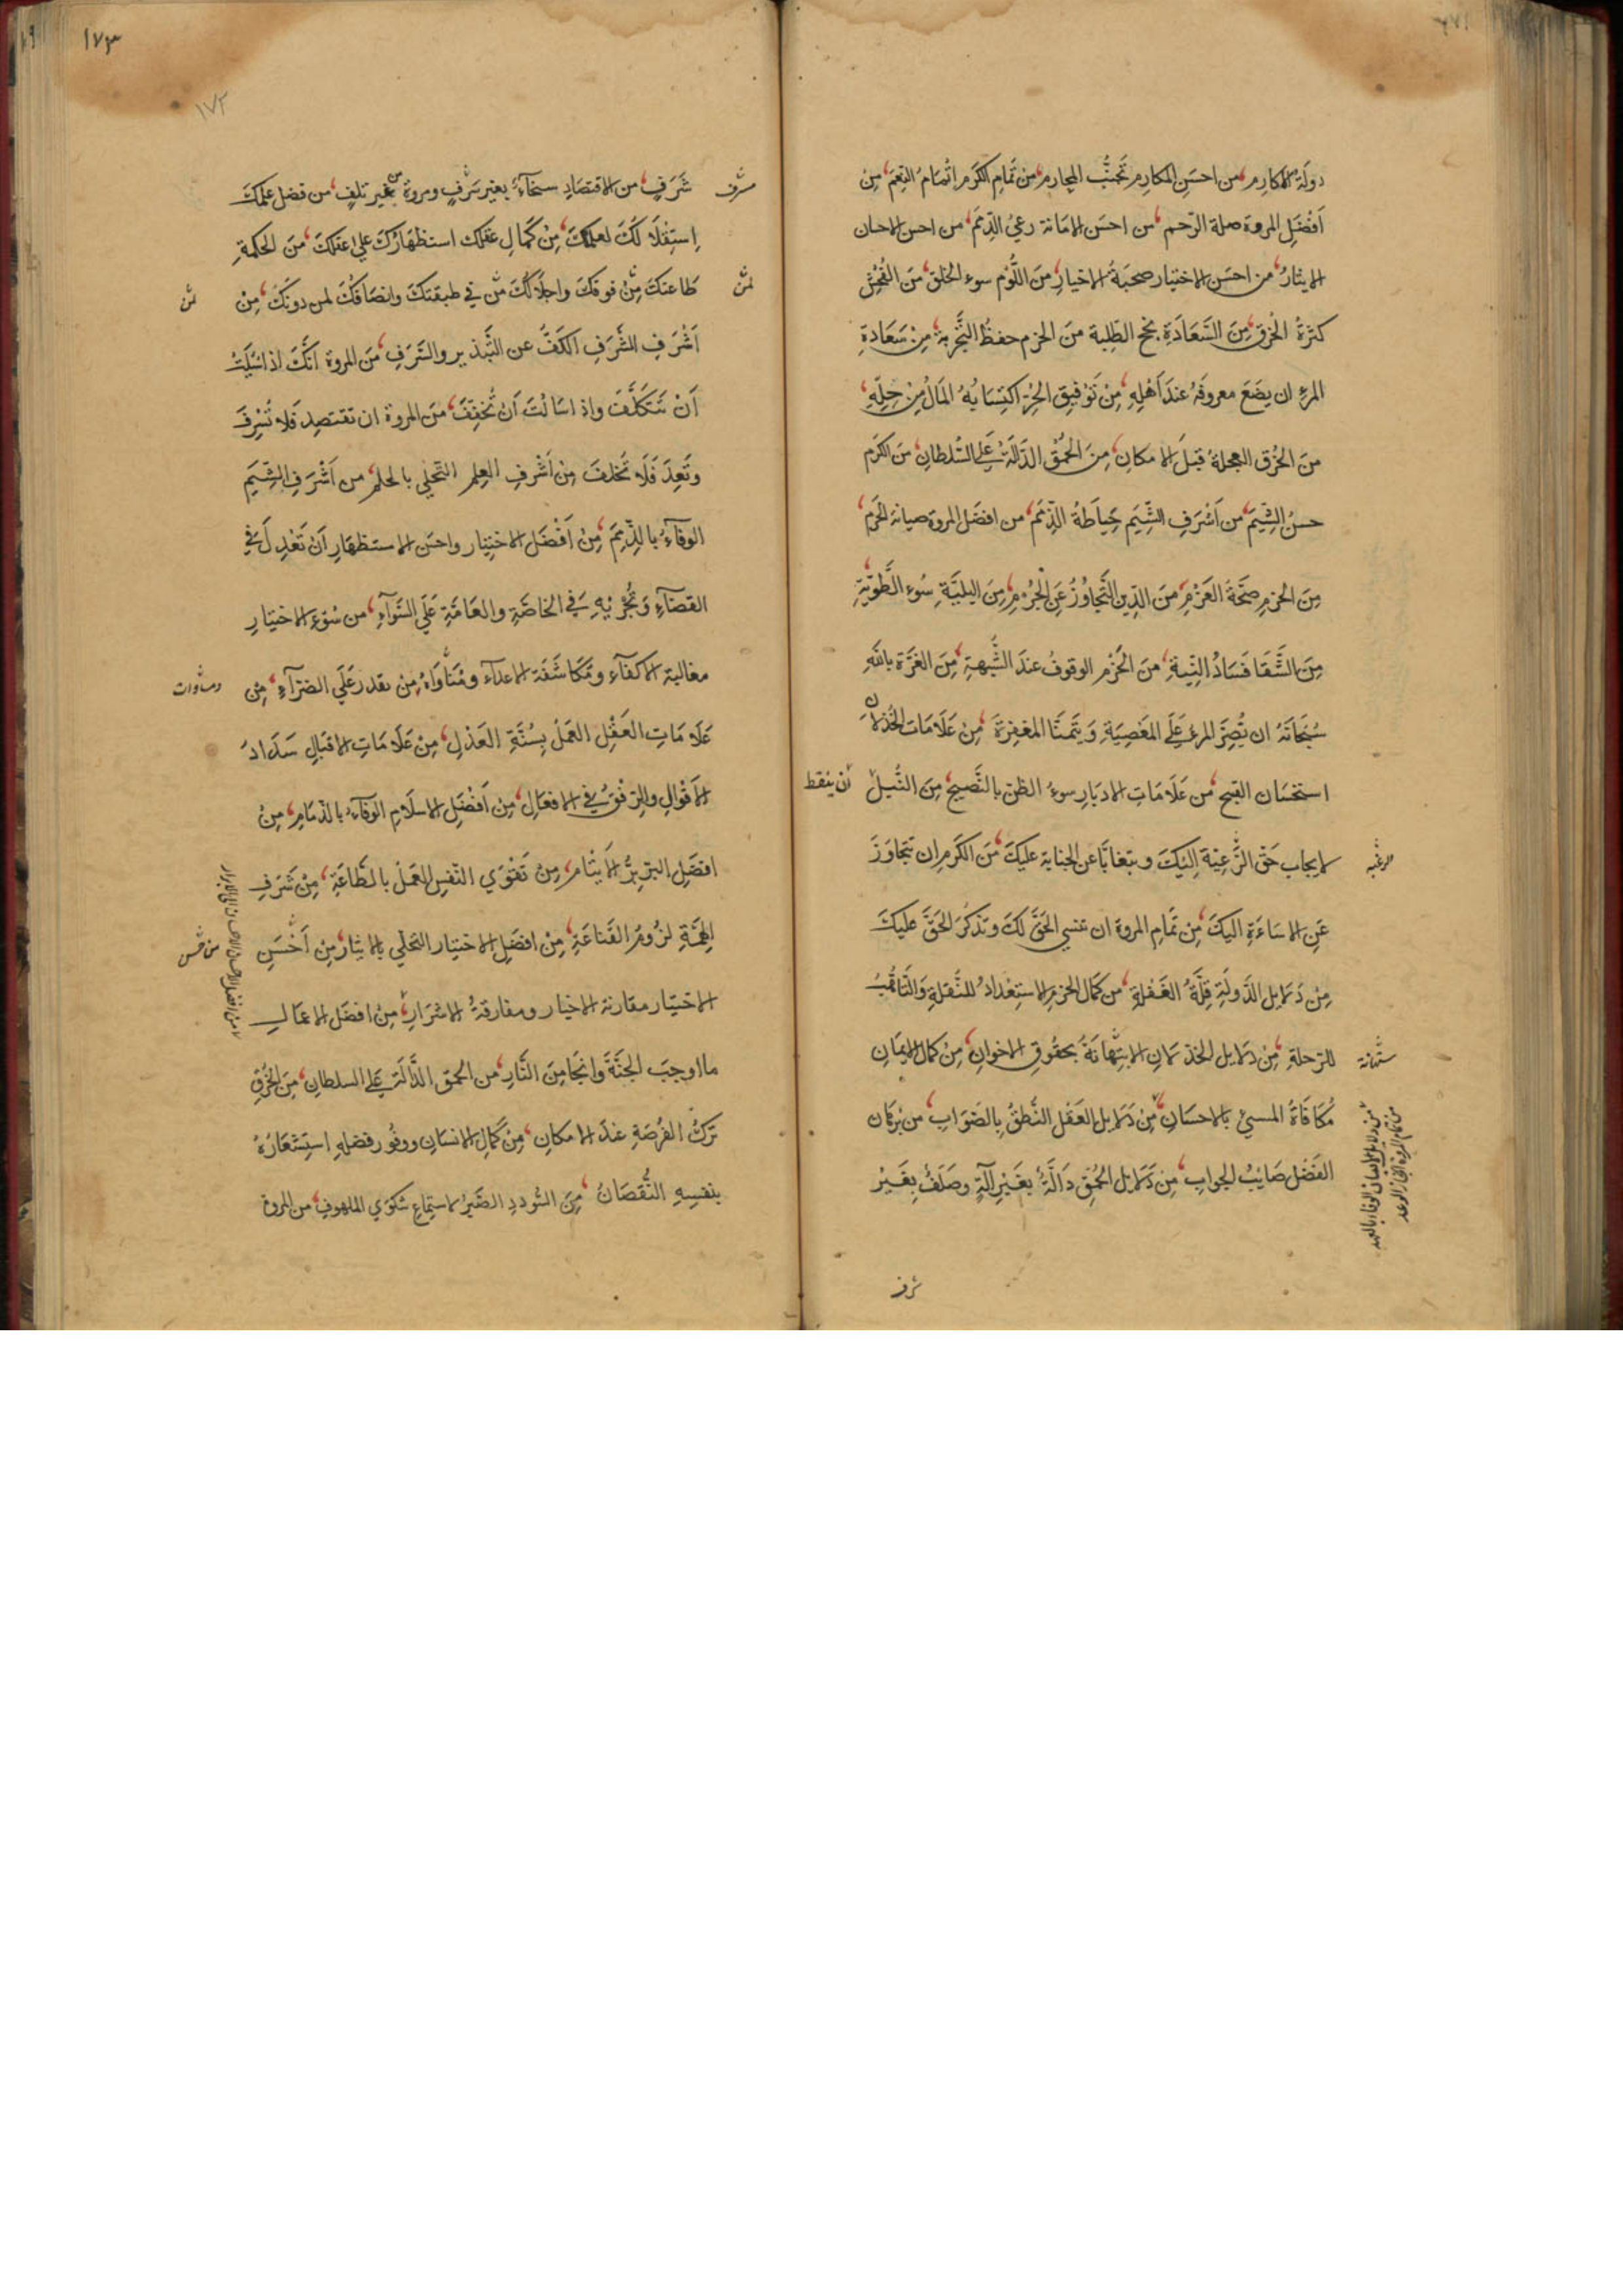 دولة الاكارم من احسن المكارم تجنب المحارم من تمام الكرم اتمام النعم من
افضل المروة صلة الرحم من احسن الامانة رعي الذمم من احسن الاحسان
الايثار من احسن الاختيار صحبة الاخيار من اللؤم سوء الخلق من الفحش
كثرة الخرق من السعادة نجح الطلبة من الحزم حفظ التجربة من سعادة
المرء ان يضع معروفه عند اهله من توفيق الحر اكتسابه المال من حله
من الخرق العجلة قبل الامكان من الحمق الدالة على السلطان من الكرم
حسن الشيم من اشرف الشيم حياطة الذمم من افضل المروة صيانة الحرم
من الحزم صحة العزم من الدين التجاوز عن الجرم من البلية سوء الطوية
من الشقا فساد النية من الحزم الوقوف عند الشبهة من الغرة بالله
سبحانه ان يصر المرء على المعصية ويتمنا المغفرة من علامات الخذلان
استحسان القبيح من علامات الادبار سوء الظن بالنصيح من النبل
ان يتيقظ
لايجاب حق الرعية اليك ويتغابا عن الجناية عليك من الكرم ان تتجاوز
الرغبه
عن الاساءة اليك من تمام المروة ان تنسي الحق لك وتذكر الحق عليك
من دلايل الدولة قلة الغفلة من كمال الحزم الاستعداد للنقلة والتاهب
للرحلة من دلايل الخذلان الاستهانة بحقوق الاخوان من كمال الايمان
ستهانة
مكافاة المسيئ بالاحسان من دلايل العقل النطق بالصواب من برهان
من دلايل الايمان الوفاء بالعهد
من تمام المروة انجاز الوعد
الفضل صايب الجواب من دلايل الحمق دالة بغير آلة وصلف بغير
شرف
١٧٣
١٧٢
شرف من الاقتصاد سخآء بغير سرف ومروة من غير تلف من فضل علمك
سرف
استقلالك لعلمك من كمال عقلك استظهارك على عقلك من الحكمة
طاعتك من فوقك واجلالك من في طبقتك وانصافك لمن دونك من
لمن
لمن
اشرف الشرف الكف عن التبذير والسرف من المروة انك اذا سئلت
ان تتكلف واذا سالت ان تخفف من المروة ان تقتصد فلا تسرف
وتعد فلا تخلف من اشرف العلم التحلي بالحلم من اشرف الشيم
الوفآء بالذمم من افضل الاختيار واحسن الاستظهار ان تعدل في
القضآء وتجريه في الخاصة والعامة على السوآء من سوء الاختيار
مغالبة الاكفآء ومكاشفة الاعدآء ومناواة من يقدر على الضرآء من
ومساوات
علامات العقل العمل بسنة العدل من علامات الاقبال سداد
الاقوال والرفق في الافعال من افضل الاسلام الوفآء بالذمام من
افضل البر بر الايتام من تقوي النفس العمل بالطاعة من شرف
الهمة لزوم القناعة من افضل الاختيار التحلي بالايثار من احسن
من افضل الاحسان الاحسان الى الابرار
الاختيار مقارنة الاخيار ومفارقة الاشرار من افضل الاعمال
ما اوجب الجنة وانجا من النار من الحمق الدالة على السلطان من الخرق
ترك الفرصة عند الامكان من كمال الانسان ووفور فضله استشعاره
بنفسه النقصان من السؤدد الصبر لاستماع شكوي الملهوف من المروة